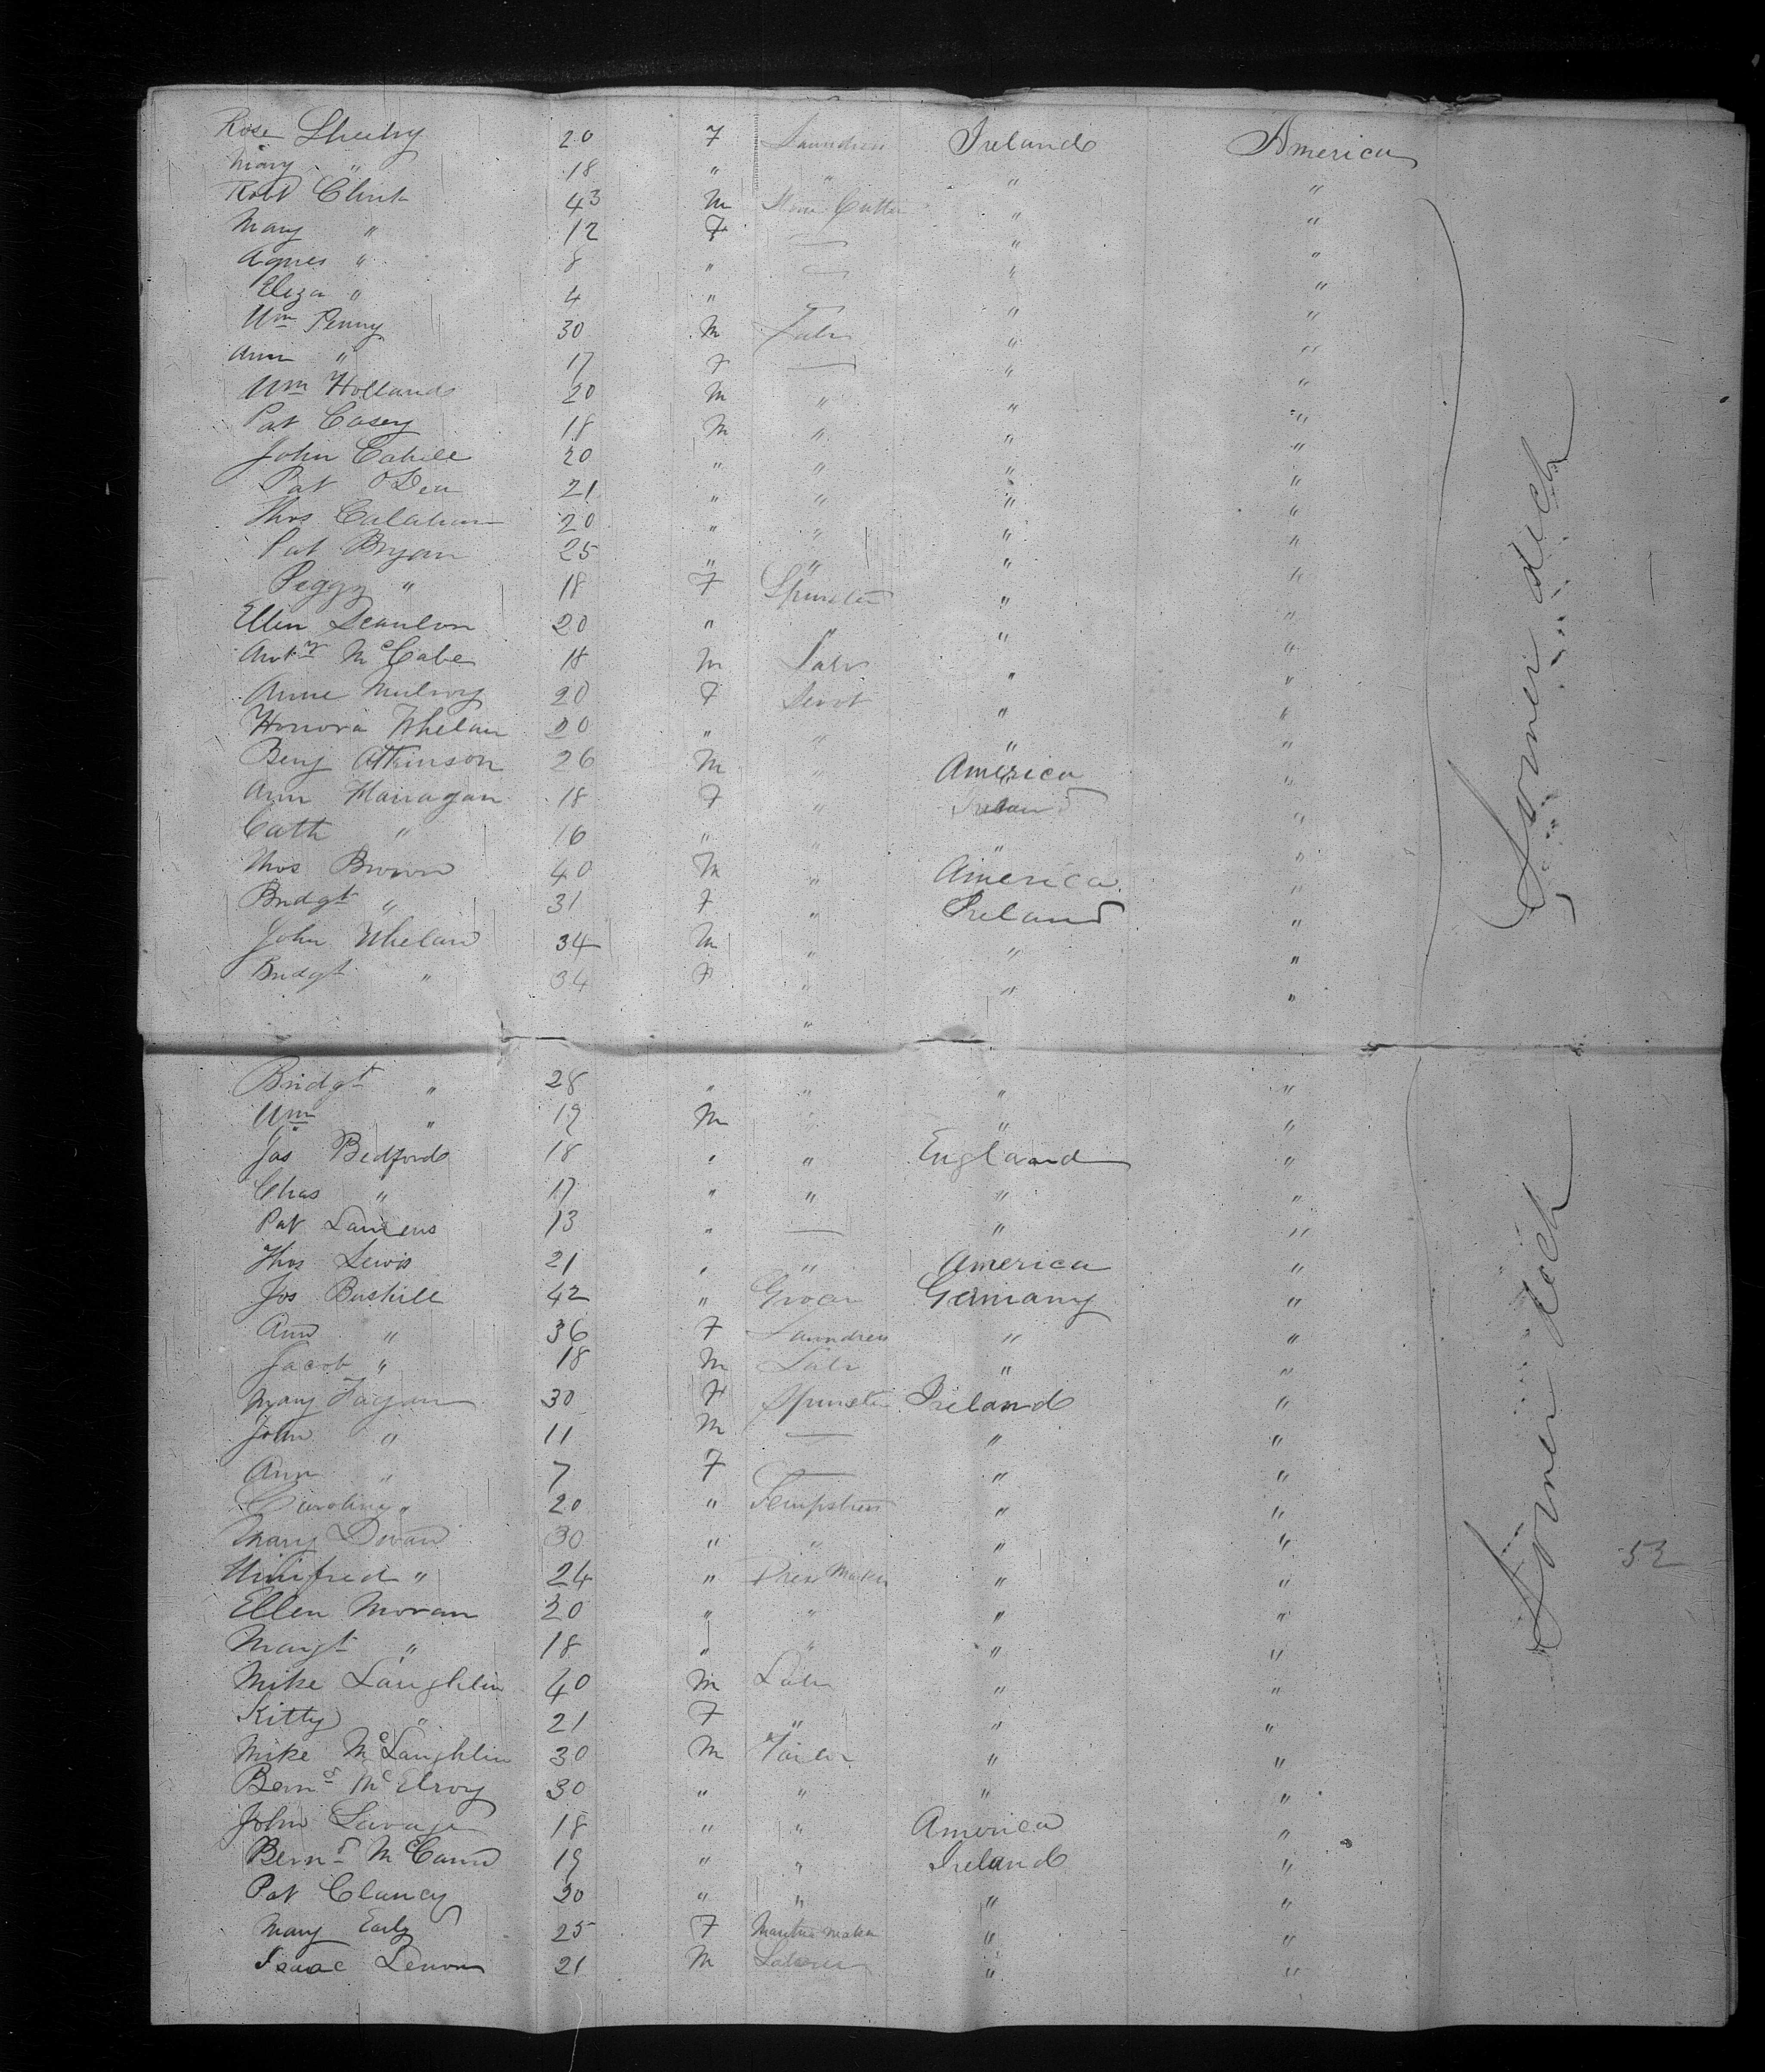 Rose Sheehy 20 F Laundress Ireland America
Mary " 18 " " " "
Robt Clink 43 M Stone Cutter " "
Mary " 12 F — " "
Agnes " 8 " — " "
Eliza " 4 " — " "
Wm Penny 30 M Labr " "
Ann " 17 F — " "
Wm Holland 20 M " " "
Pat Casey 18 M " " "
John Cahill 20 " " " "
Pat O'Dea 21 " " " "
Thos Calahan 20 " " " "
Pat Bryan 25 " " " "
Peggy " 18 F Spinster " "
Ellen Scanlon 20 " " " "
Anty McCabe 18 M Labr " "
Anne Mulroy 20 F Servt " "
Honora Whelan 20 " " " "
Benj Atkinson 26 M " America "
Ann Flanagan 18 F " Ireland "
Cath " 16 " " " "
Thos Brown 40 M " America "
Bridgt " 31 F " Ireland "
John Whelan 34 M " " "
Bridgt " 34 F " " "
"
Bridgt " 28 " " " "
Wm " 19 M " " "
Jas Bedford 18 " " England "
Chas " 17 " " " "
Pat 13 " — " "
Thos Lewis 21 " " America "
Jos Bushill 42 " Grocer Germany "
Ann " 36 F Laundress " "
Jacob " 18 M Labr " "
Mary Fagan 30 F Spinster Ireland "
John " 11 M — " "
Ann " 7 F — " "
Caroline " 20 " Sempstress " "
Mary Dovan 30 " " " "
Winifred " 24 " Dress Maker " "
Ellen Moran 20 " " " "
Margt " 18 " " " "
Mike Laughlin 40 M Labr " "
Kitty " 21 F " " "
Mike McLaughlin 30 M Tailor " "
Bernd McElroy 30 " " " "
John Savage 18 " " America "
Bernd McCann 19 " " Ireland "
Pat Clancy 30 " " " "
Mary Early 25 F Mantua Maker " "
Isaac Lenon 21 M Laborer " "
Lower deck
Lower deck
52